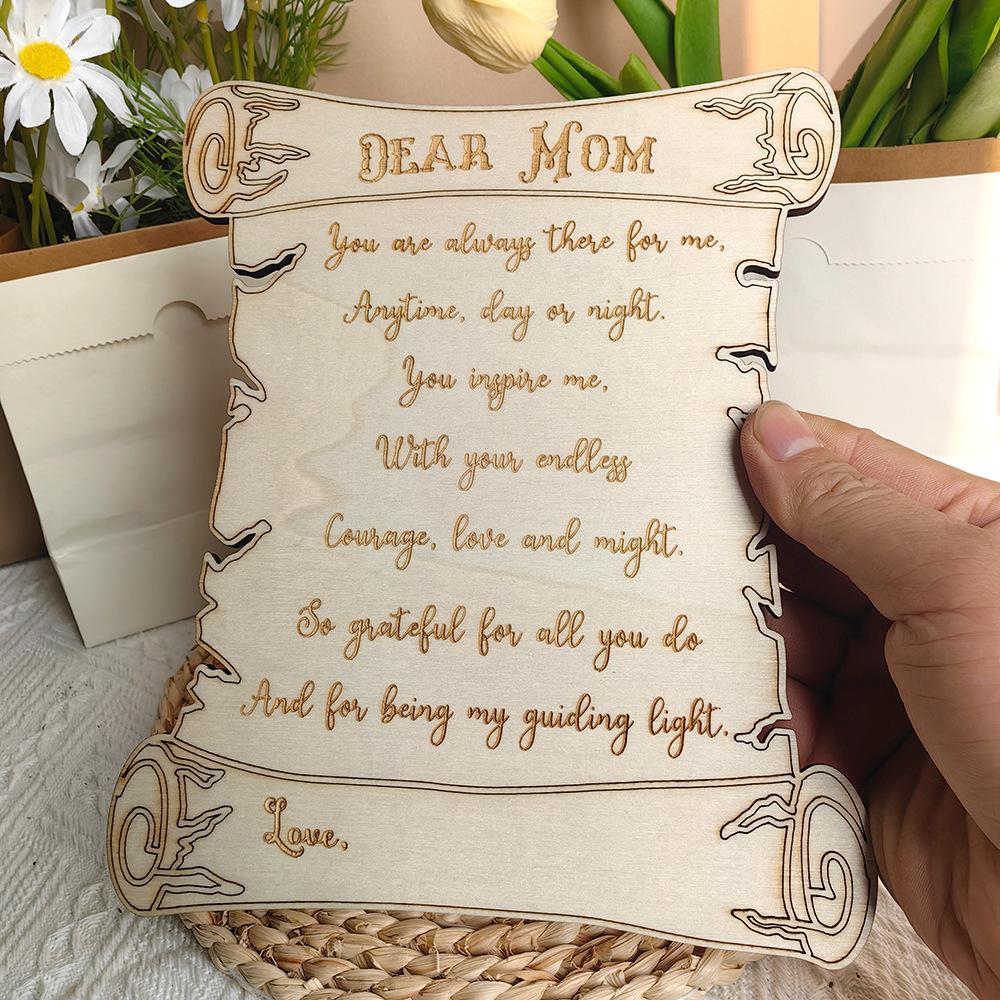 DEAR MOM
You are always there for me,
Anytime, day or night.
You inspire me,
With your endless
Courage, love and might.
So grateful for all you do
And for being my guiding light.
Love,